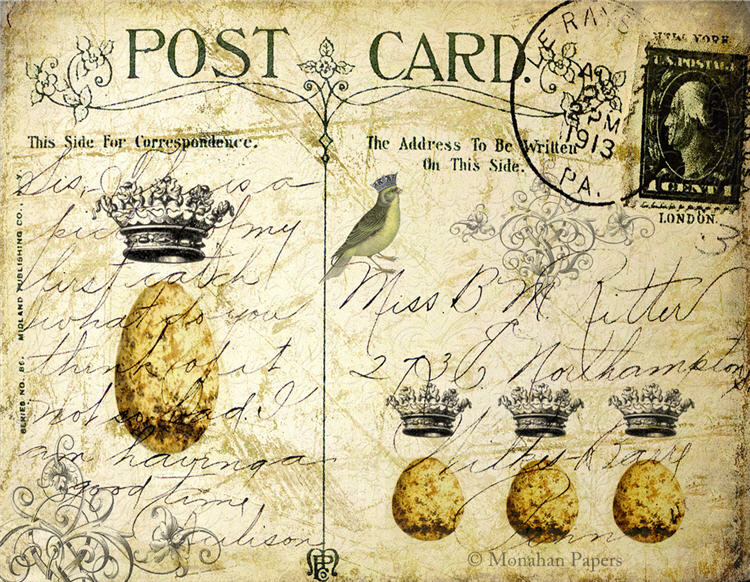 POST CARD.
LE RAYS
1913
PM
PA.
NEW YORK
U.S. POSTAGE
1 CENT 1
LONDON.
This Side For Correspondence.
The Address To Be Written
On This Side.
SERIES NO. 86. MIDLAND PUBLISHING CO., N.Y.
Sis, This is a
pic of my
last catch
what do you
think of it
not so bad. I
am having a
good time
Miss. B. M. Ritter
Northampton
Wilkes-Barre
Penn
© Monahan Papers